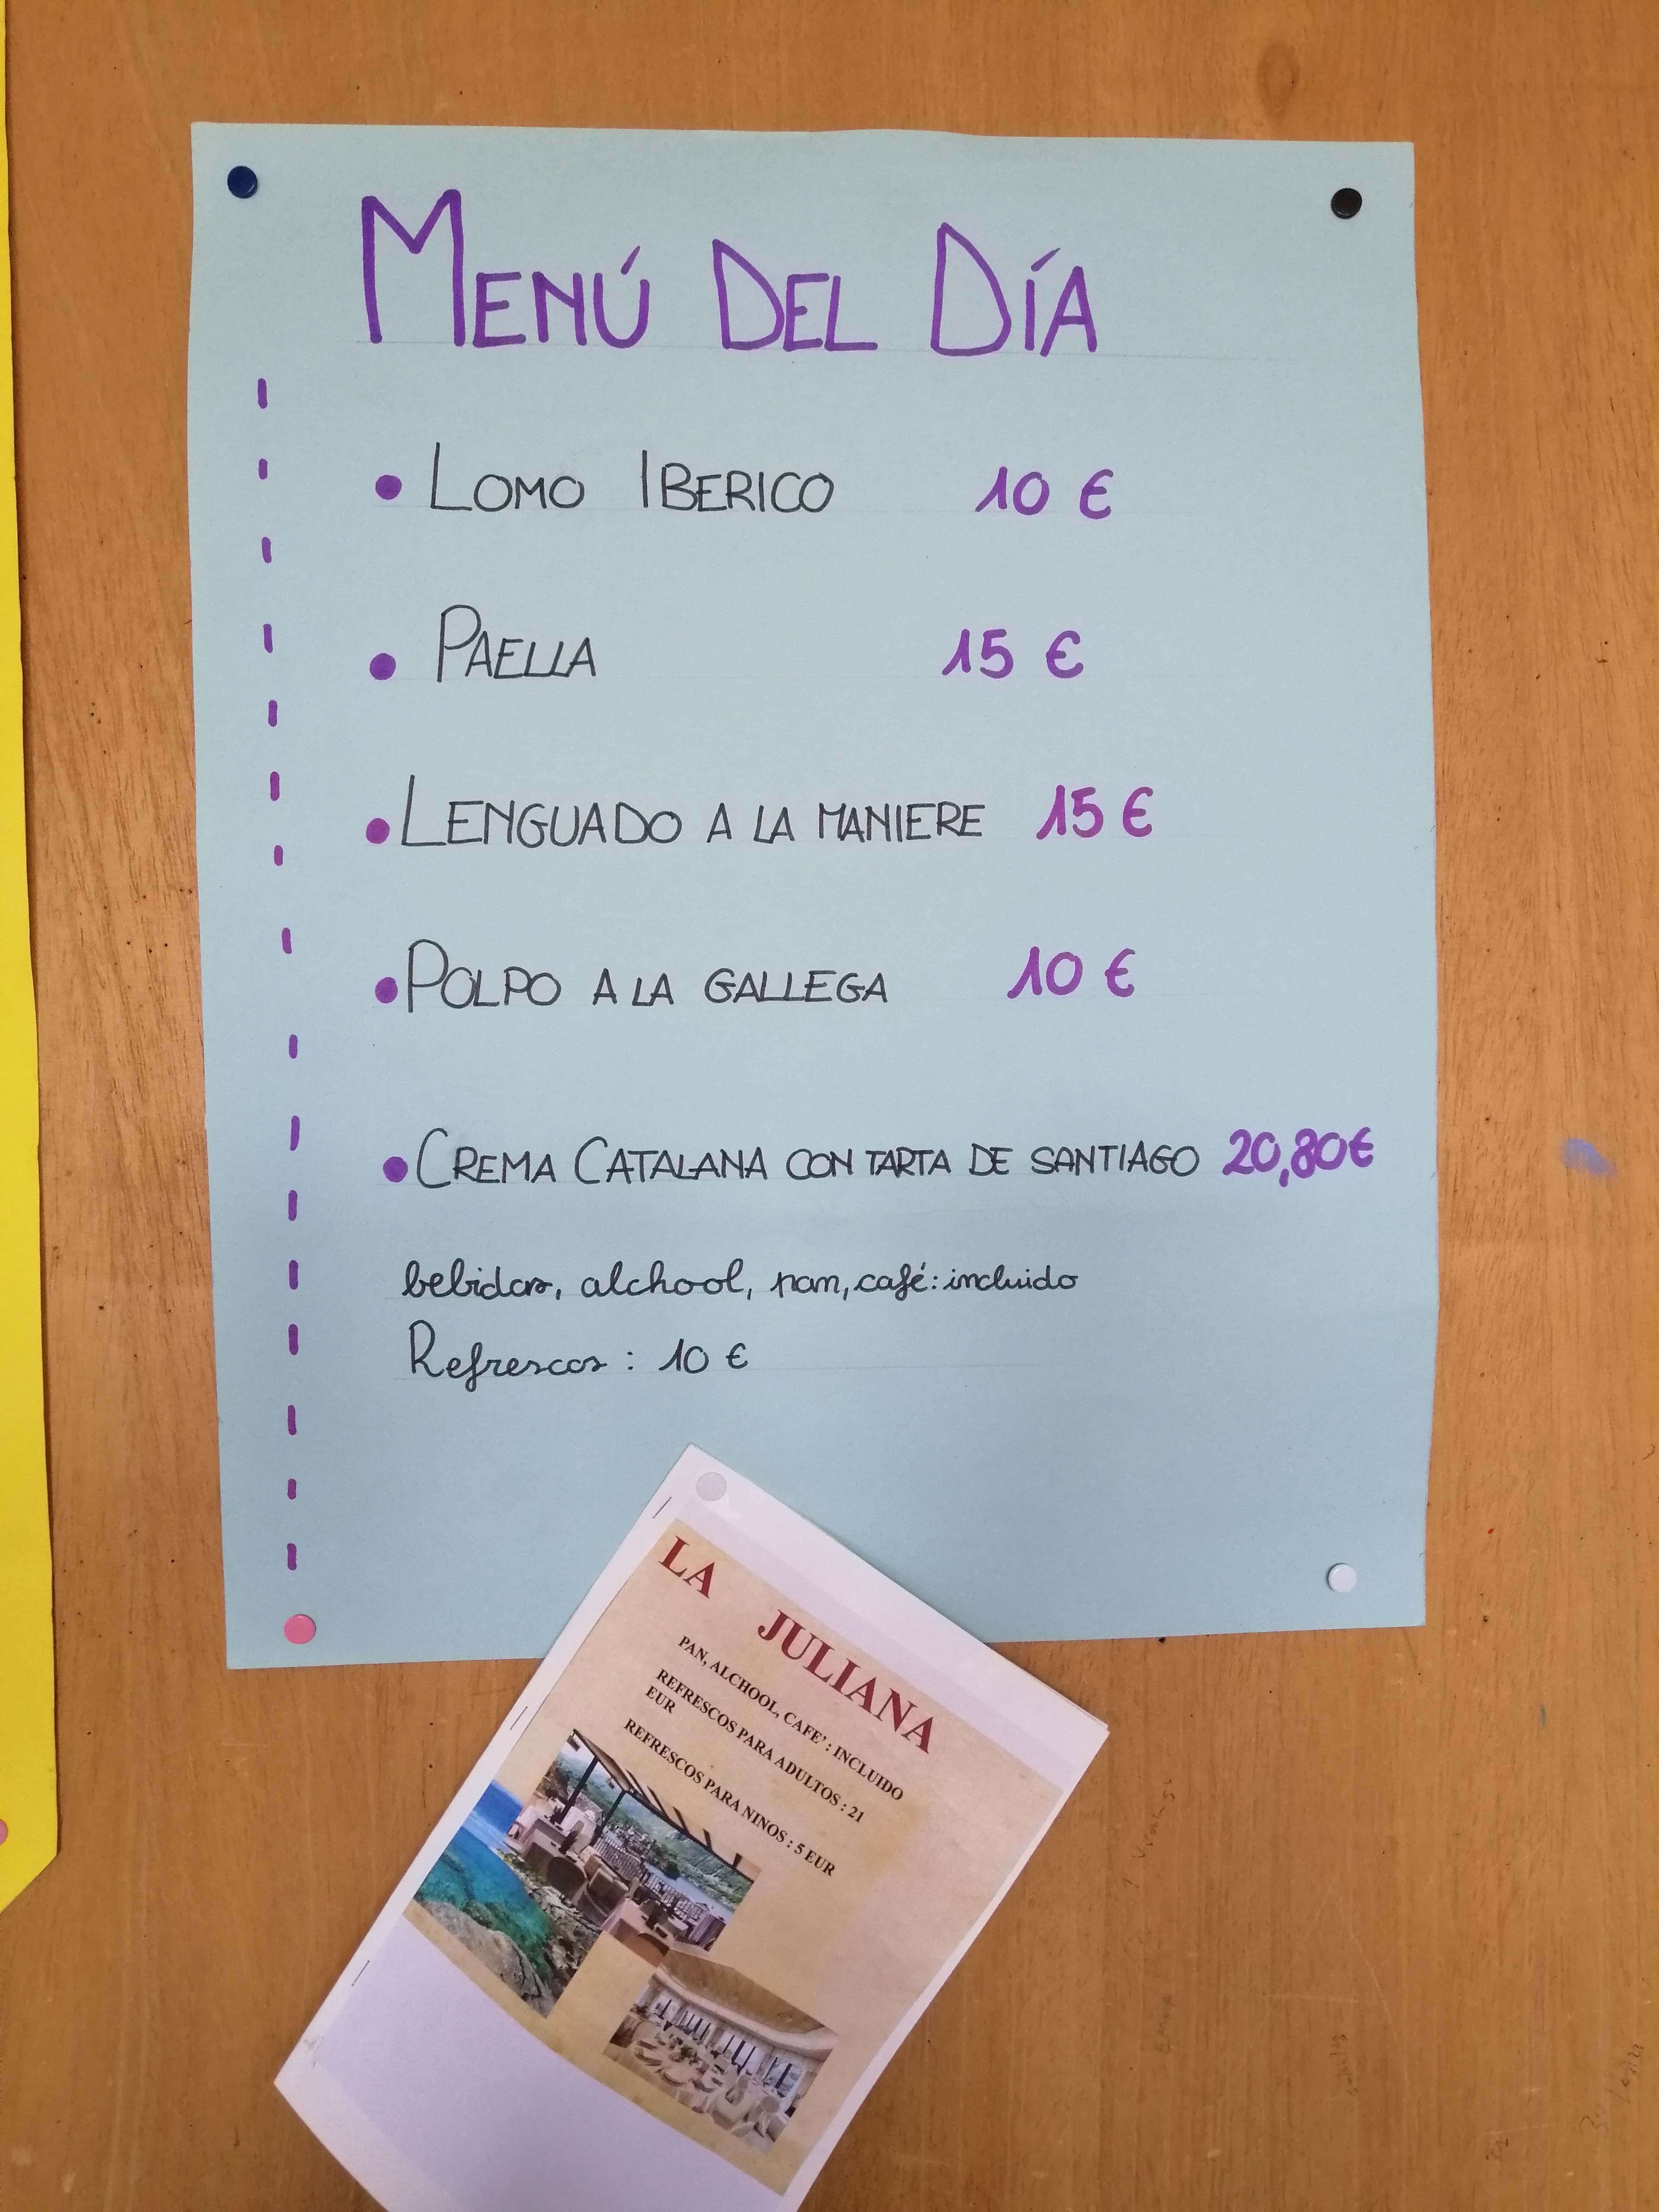 MENÚ DEL DÍA
• LOMO IBERICO 10 €
• PAELLA 15 €
• LENGUADO A LA MANIERE 15 €
• POLPO A LA GALLEGA 10 €
• CREMA CATALANA CON TARTA DE SANTIAGO 20,80€
bebidas, alchool, pan, café: incluido
Refrescos : 10 €
LA JULIANA
PAN, ALCHOOL, CAFE' : INCLUIDO
REFRESCOS PARA ADULTOS : 21
EUR
REFRESCOS PARA NINOS : 5 EUR